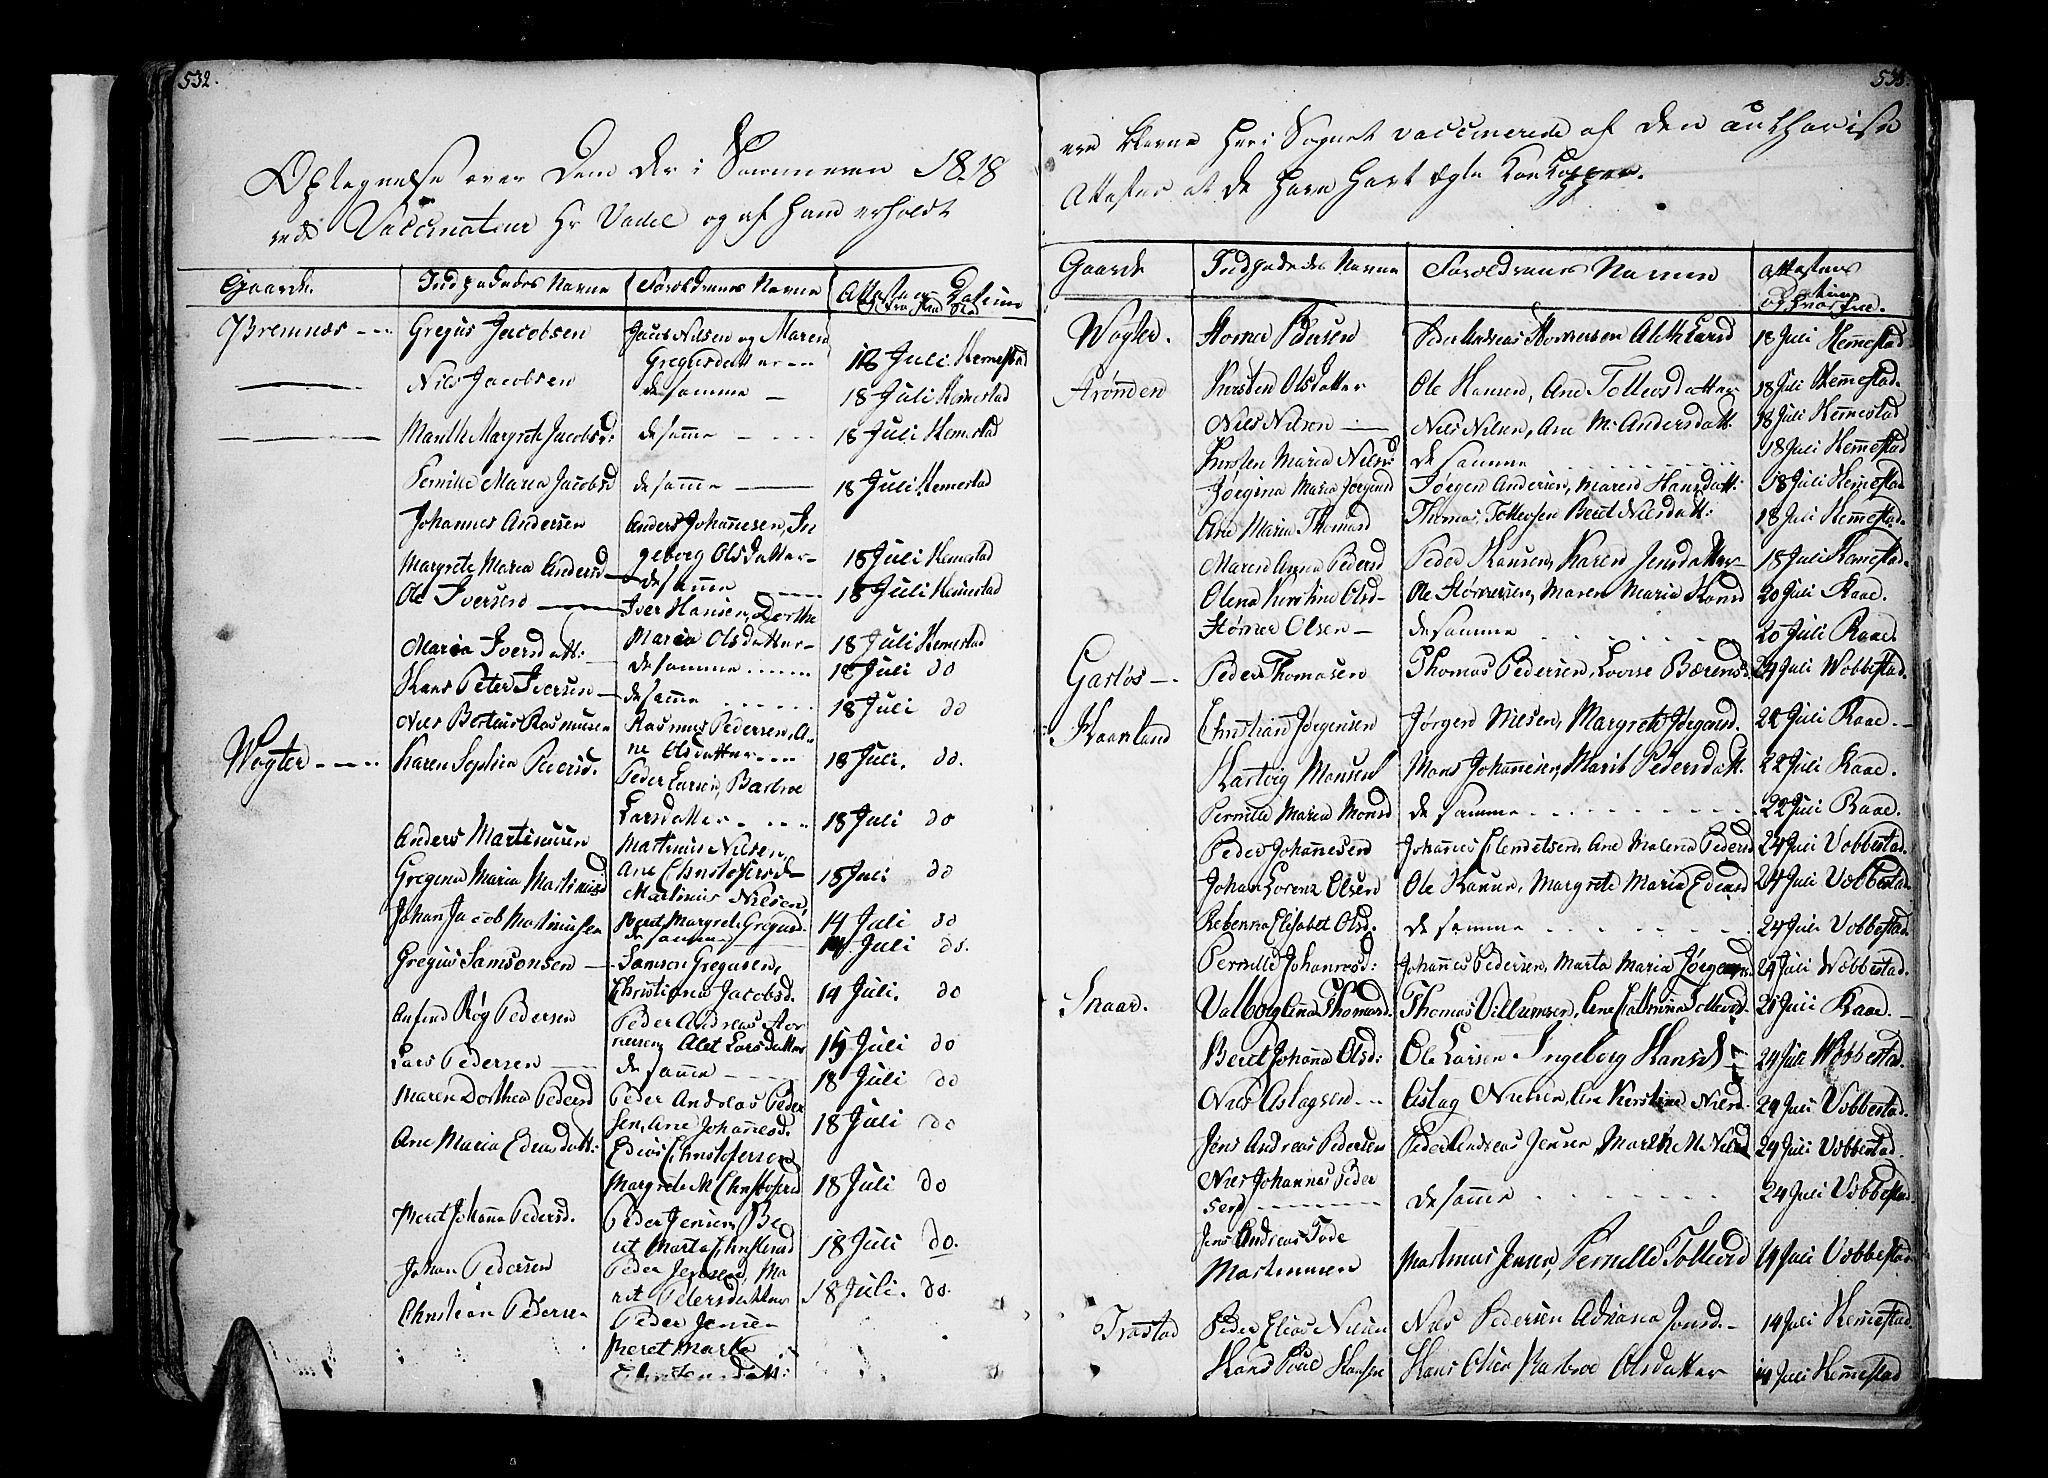 532.
Optegnelse over Dem der i Sommeren 1818
Vaccinateur Hr Vadel og af ham erholdt
Gaarde. Indpodedes Navne Forældrenes Navne Attestens Datum
Bremnæs Gregus Jacobsen Jacob Nilsen og Maren
Gregusdatter 18 Juli Hemestad
Nils Jacobsen de samme 18 Juli Hemestad
Marith Margrete Jacobsd: de samme 18 Juli Hemestad
Pernille Maria Jacobsd de samme 18 Juli Hemestad
Johannes Andersen Anders Johannesen, In
geborg Olsdatter 18 Juli Hemestad
Margrete Maria Andersd de samme 18 Juli Hemestad
Ole Iversen Iver Hansen, Dorthe
Maria Olsdatter 18 Juli Hemestad
Maria Iversdatt: de samme 18 Juli do
Hans Peter Iversen de samme 18 Juli do
Nils Bertius Rasmussen Rasmus Pedersen, A
ne Olsdatter 18 Juli. do.
Wogter Karen Sophia Pedersd. Peder Larsen, Barbroe
Larsdatter 18 Juli do
Anders Martinusen Martinus Nilsen,
Ane Christophersd 18 Juli do
Gregina Maria Martinusd Martinus Nilsen,
Beret Margrete Gregusd. 14 Juli do
Johan Jacob Martinusen de samme 14 Juli do.
Gregius Samsonsen Samson Gregusen,
Christiana Jacobsd. 14 Juli. do
Anfind Røg Pedersen Peder Andreas Hor
nesen, Alet Larsdatter 15 Juli do
Lars Pedersen de samme 18 Juli do
Maren Dorthea Pedersd Peder Andreas Peder
sen, Ane Johannesd. 18 Juli do
Ane Maria Edeasdatt: Edias Christofersen
Margrete M Christophersd 18 Juli do
Meret Johanna Pedersd. Peder Jensen, Be
ret Marta Christensd 18 Juli do.
Johan Pedersen Peder Jensen, Ma
rit Pedersdatter 18 Juli. do.
Christian Pedersen Peder Jensen
Meret Marta
Christensdatt:
533.
ere blevne her i Sognet vaccinerede af den authorise
Attester at de have havt ægte Koekopper.
Gaarde Indpodedes Navne Forældrenes Navne Attestens
Datum
Wogter. Horner Pedersen Peder Andreas Hornersen Aleth Larsd 18 Juli Hemmestad
Kirsten Olsdatter Ole Hansen, Ane Tollefsdatter 18 Juli Hemmestad.
Nils Nilsen Nils Nilsen, Ane M. Andersdatt. 18 Juli Hemmestad
Kirsten Maria Nilsd: de samme 18 Juli Hemmestad
Jørgina Maria Jørgensd Jørgen Andersen, Maren Hansdatt: 18 Juli Hemmestad
Ane Maria Thomasd Thomas Tollevsen Beret Nilsdatt: 18 Juli Hemmestad.
Maren Anna Pedersd Peder Hansen, Karen Jensdatter 18 Juli Hemestad.
Olena Kirstine Olsd Ole Hornersen, Maren Maria Hansd 20 Juli Raae.
Hørner Olsen de samme 20 Juli Raae.
Gasløs Peder Thomasen Thomas Pedersen, Lovise Børensd. 24 Juli Wobbestad.
Skaanland Christian Jørgensen Jørgen Nilsen, Margrete Jørgensd. 22 Juli Raae.
Hartvig Monsen Mons Johannesen, Marit Pedersdatt. 22 Juli Raae.
Pernille Maria Monsd de samme 22 Juli Raae.
Peder Johannesen Johannes Clemetsen, Ane Malena Pedersd 24 Juli Vobbestad.
Johan Lorenz Olsen Ole Hansen, Margrete Maria Edeasd 24 Juli Vobbestad.
Rebenna Elisabet Olsd. de samme 24 Juli Vobbestad.
Pernille Johannesd: Johannes Pedersen, Marta Maria Jørgensd 24 Juli Wobbestad.
Snaar. Valborg Ana Thomasd. Thomas Villumsen, Ane Cathrina Tollevsd. 21 Juli Raae.
Beret Johanna Olsd: Ole Larsen Ingeborg Hansd: 24 Juli Wobbestad.
Nils Aslagsen Aslag Nielsen, Ane Kirstina Nilsd. 24 Juli Vobbestad.
Jens Andreas Pedersen Peder Andreas Jensen, Mareth M. Nilsd 24 Juli Vobbestad.
Nils Johannes Peder
sen de samme 24 Juli Vobbestad.
Jens Andreas Tode
Martinusen Martinus Jensen, Pernille Tollevsd 14 Juli Vobbestad
Trastad Peder Elias Nilsen Nils Pedersen Adriana Jonsd. 14 Juli Hemestad.
Hans Povel Hansen Hans Olsen Barbroe Olsdatter 14 Juli Hemmestad